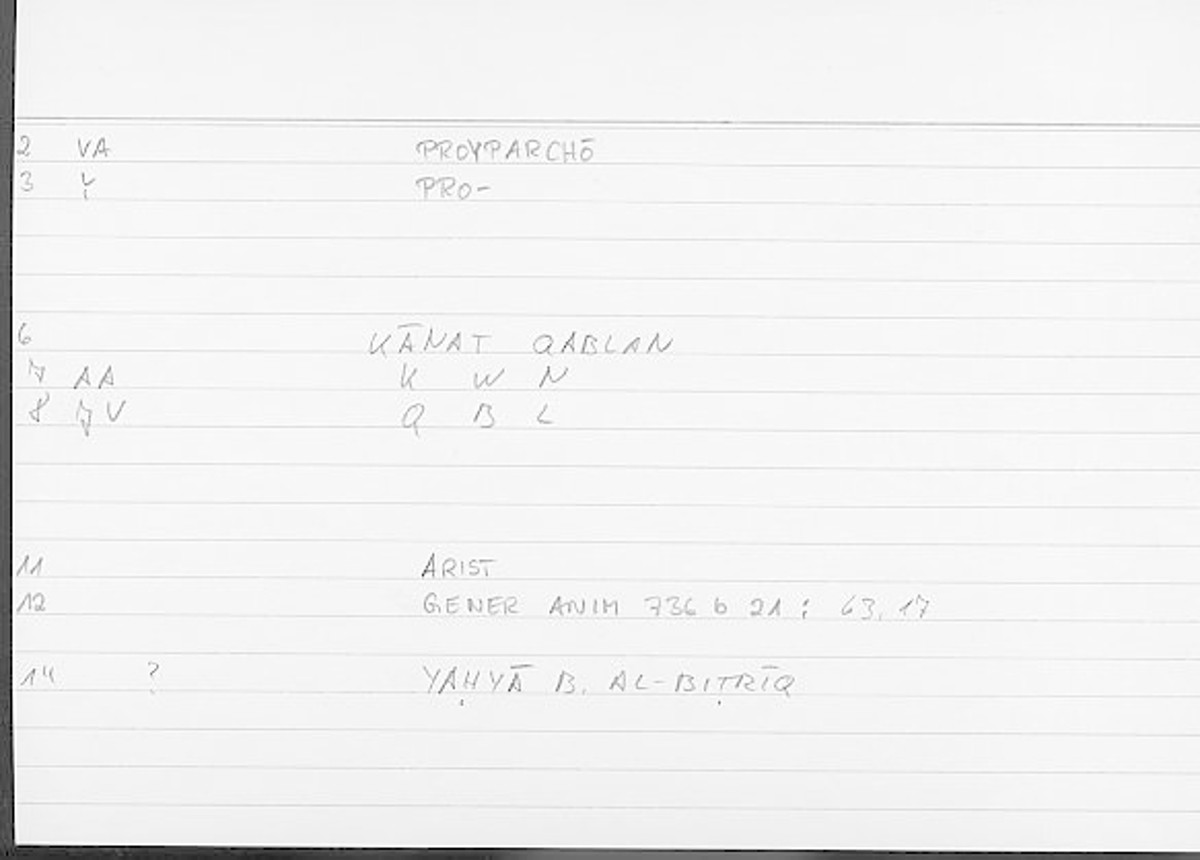 2 VA PROYPARCHŌ
3 PRO-
6 KĀNAT QABLAN
7 AA K W N
8 V Q B L
11 ARIST
12 GENER ANIM 736 b 21 : 63.17
14 ? YAḤYĀ B. AL-BIṬRĪQ